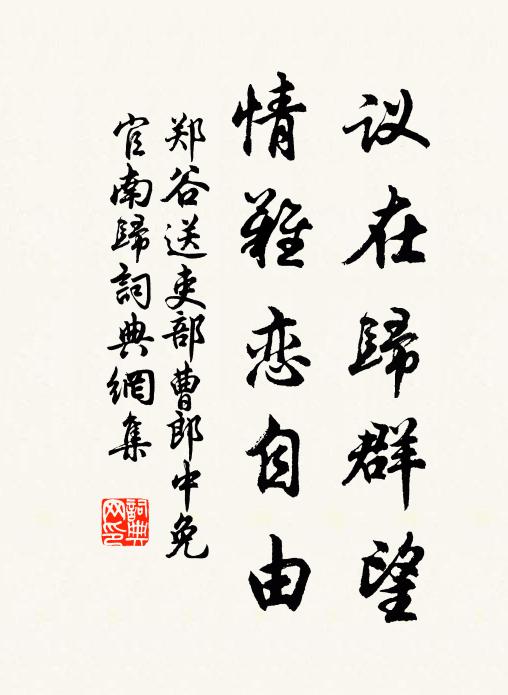 议在歸群望
情難恋自由
郑谷送吏部曹郎中免
官南歸詞典網集
詞典
网印